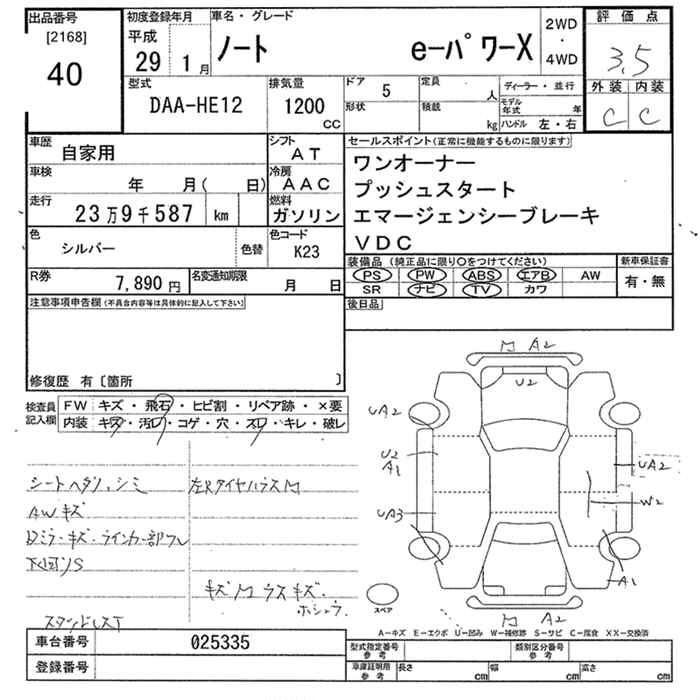 出品番号
[2168]
40
初度登録年月
平成
29 1 月
車名・グレード
ノート e-パワーX
2WD
・
4WD
評価点
3.5
外装 内装
C C
型式
DAA-HE12
排気量
1200
CC
ドア 5
形状
定員 人
積載 kg
ディーラー・並行
モデル年式 年
ハンドル 左・右
車歴
自家用
シフト
AT
車検
年 月( 日)
冷房
AAC
走行
23万9千587 km
燃料
ガソリン
色
シルバー
色替
色コード
K23
R券
7,890 円
名変通知期限
月 日
セールスポイント(正常に機能するものに限ります)
ワンオーナー
プッシュスタート
エマージェンシーブレーキ
VDC
装備品(純正品に限り○をつけてください)
PS PW ABS エアB AW
SR ナビ TV カワ
新車保証書
有・無
後日品
注意事項申告欄(不具合内容等は具体的に記入して下さい)
修復歴 有〔箇所 〕
検査員
記入欄
FW キズ・飛石・ヒビ割・リペア跡・×要
内装 キズ・汚レ・コゲ・穴・スレ・キレ・破レ
シートヘタリ、シミ
AWキズ
下回りS
A2
U2
UA2
U2
A1
UA3
UA2
W2
A1
A2
スペア
A－キズ E－エクボ U－凹み W－補修跡 S－サビ C－腐食 XX－交換済
車台番号
025335
登録番号
型式指定番号
参考
類別区分番号
参考
車庫証明用
参考
長さ cm
幅 cm
高さ cm